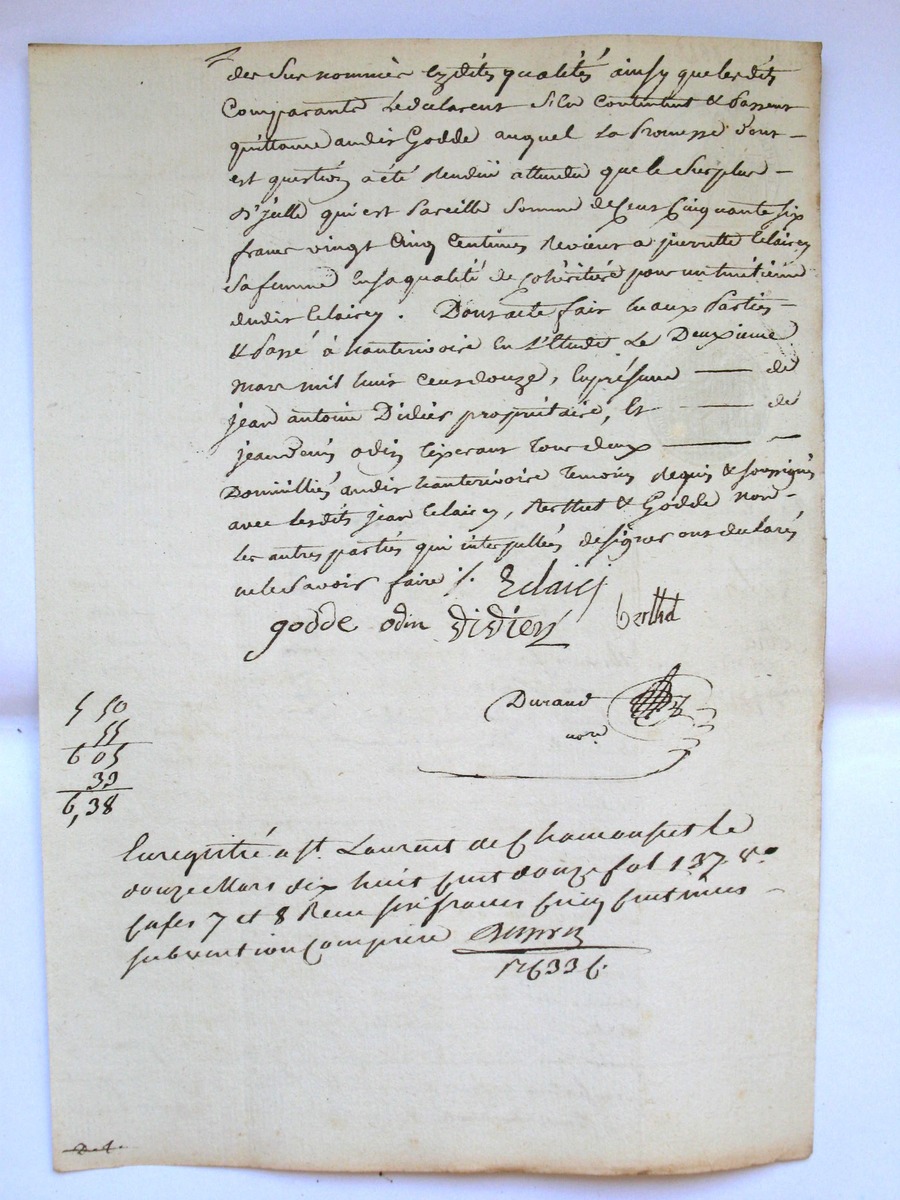 des sus nommés esdites qualités ainsy que lesdits
Comparants Le declarent Silz Contentent & Passent
quittance audit Godde auquel La Promesse dont
est question a été Rendüe attendu que le Surplus
D'jcelle qui est Pareille Somme de Cent Cinquante six
francs vingt Cinq Centimes Revient a pierrette Eclaircy
Sa femme En sa qualité de Cohéritière pour un
dudit Eclaircy. Dont acte fait lu aux Parties
& Passé à hauterivoire En L'Etude Le Deuxieme
mars mil huit Cent douze, En présence de
jean antoine Didier propriétaire, Et de
jean denis odin tous deux
Domicilliés audit hauterivoire Temoins Requis & soussignés
avec lesdits jean Eclaircy, Berthet & Godde non
les autres parties qui interpellées de signer ont declarés
ne le Savoir faire ./.
godde odin Didier
Durand
nore
5 50
55
6 05
33
6,38
Enregistré a St. Laurent de Chamousset le
douze Mars dix huit Cent douze fol 137 Vo
Cases 7 et 8 Recu six francs Cinq Centimes
subvention Comprise